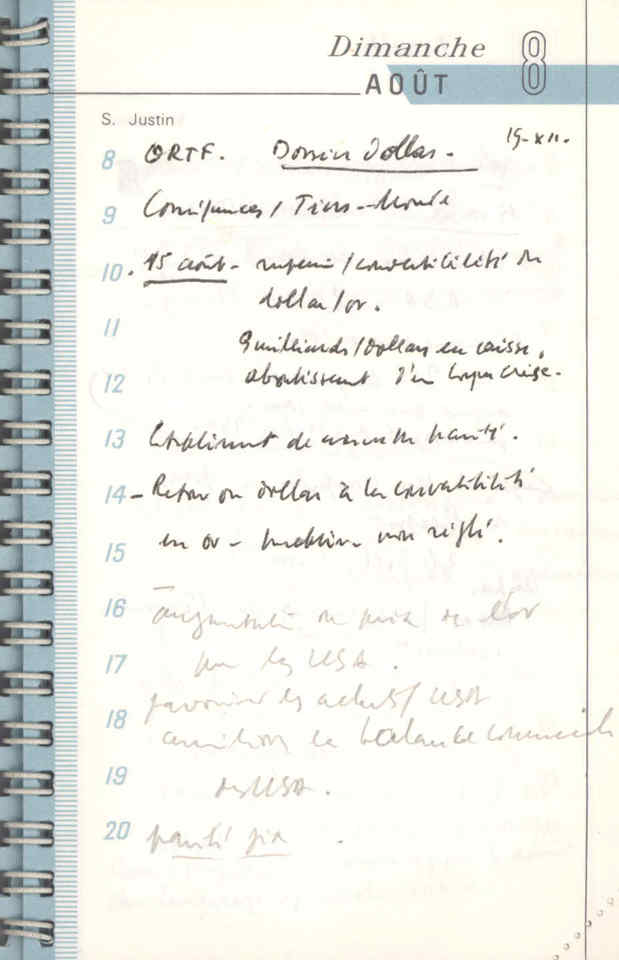 Dimanche 8
AOÛT
S. Justin
19-XII.
8 ORTF. Dossier Dollar.
9 Conséquences / Tiers-Monde
10. 15 août - suspension / convertibilité du
dollar / or.
11 9 milliards / Dollars en caisse,
12 aboutissement d'un longue crise.
13 Etablissement de nouvelle parité.
14 - Retour du dollar à la convertibilité
15 en or - problème non réglé.
16 augmentation du prix de l'or
17 par les USA.
favoriser les achats / USA
18 améliorer la balance commerciale
19 des USA.
20 parité fixe.